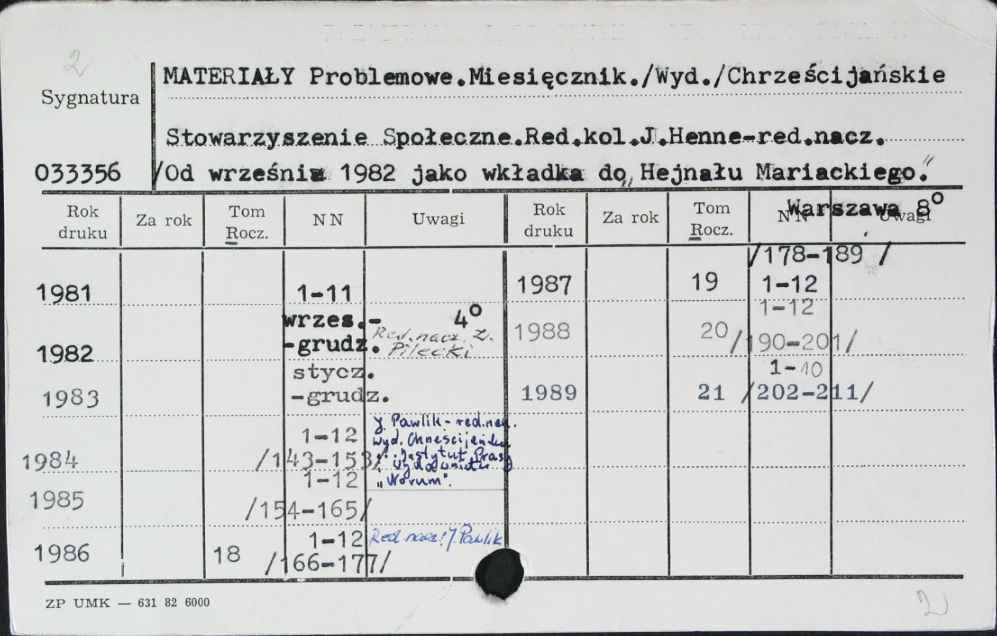 2
MATERIAŁY Problemowe.Miesięcznik./Wyd./Chrześcijańskie
Sygnatura
Stowarzyszenie Społeczne.Red.kol.J.Henne-red.nacz.
033356 /Od września 1982 jako wkładka do „Hejnału Mariackiego."
Warszawa 8°
Rok druku Za rok Tom Rocz. NN Uwagi Rok druku Za rok Tom Rocz. NN Uwagi
/178-189 /
1981 1-11 1987 19 1-12
wrzes.- 4° 1-12
1982 -grudz. Red. nacz. Z. Pilecki 1988 20 /190-201/
stycz. 1-10
1983 -grudz. 1989 21 /202-211/
1-12 J. Pawlik - red.nacz.
1984 /143-153/ wyd. Chrześcijańskie
i Instytut Prasy
1-12 i Wydawnictw
1985 /154-165/ „Novum".
1-12 Red. nacz. J. Pawlik
1986 18 /166-177/
ZP UMK — 631 82 6000
2